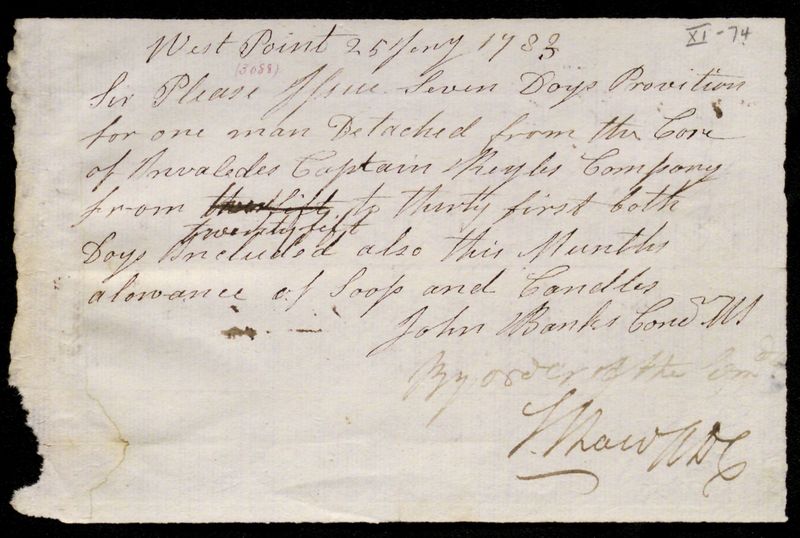 West Point 25 Jeny 1783
XI-74
(3088)
Sir Please Issue Seven Days Provition
for one man Detached from the Core
of Invaledes Captain Meyles Company
from to thirty first both
twenty fift
Days Included also this Munths
alowance of Soop and Candles
John Banks Condr MS
By order of the Comdr
S. Shaw ADC